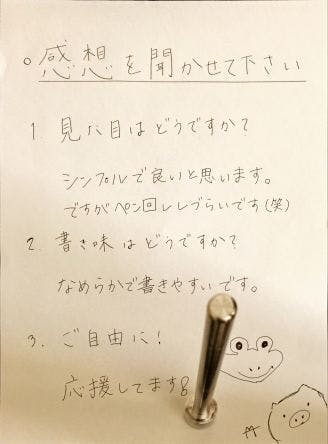 ○感想を聞かせて下さい
1. 見た目はどうですか?
シンプルで良いと思います。
ですがペン回ししづらいです(笑)
2. 書き味はどうですか?
なめらかで書きやすいです。
3. ご自由に!
応援してます